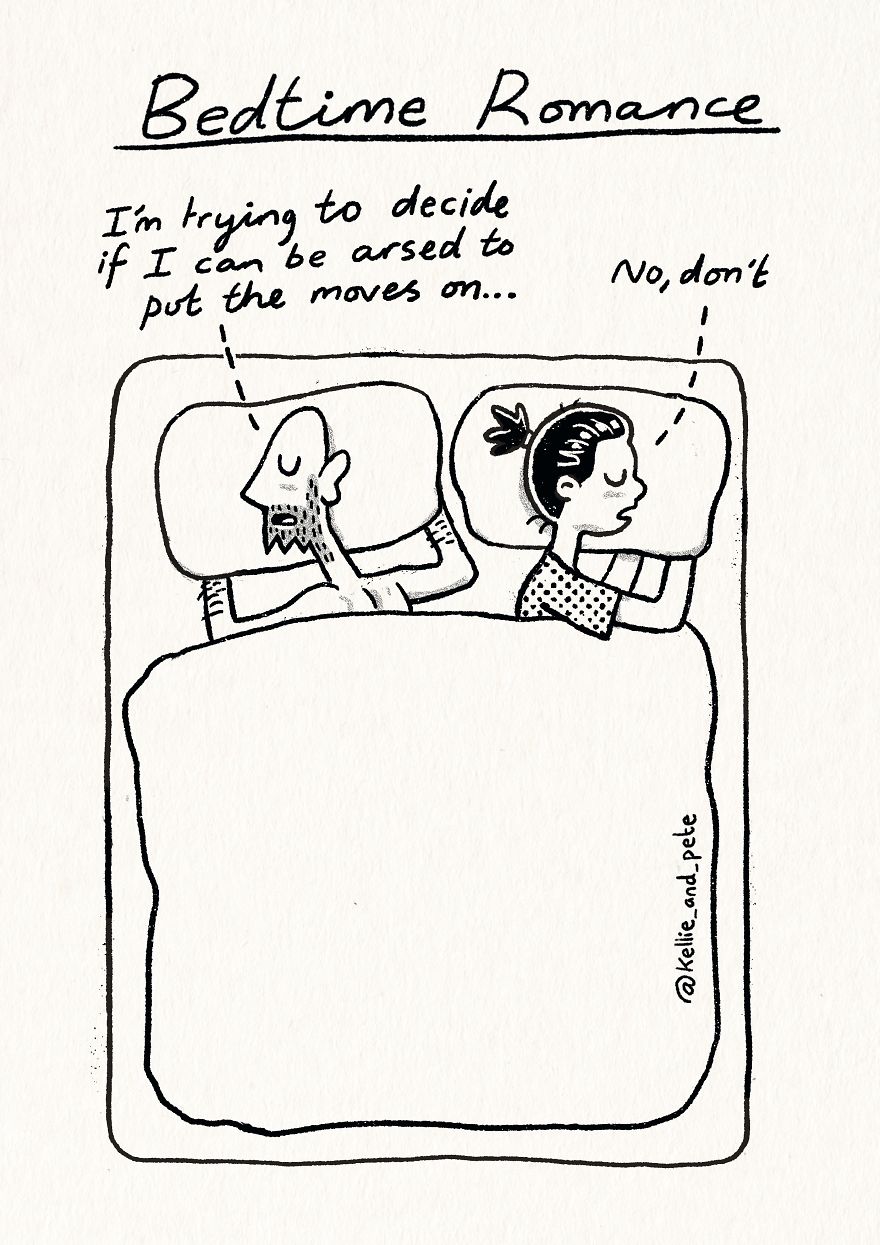 Bedtime Romance
I'm trying to decide
if I can be arsed to
put the moves on...
No, don't
@kellie_and_pete